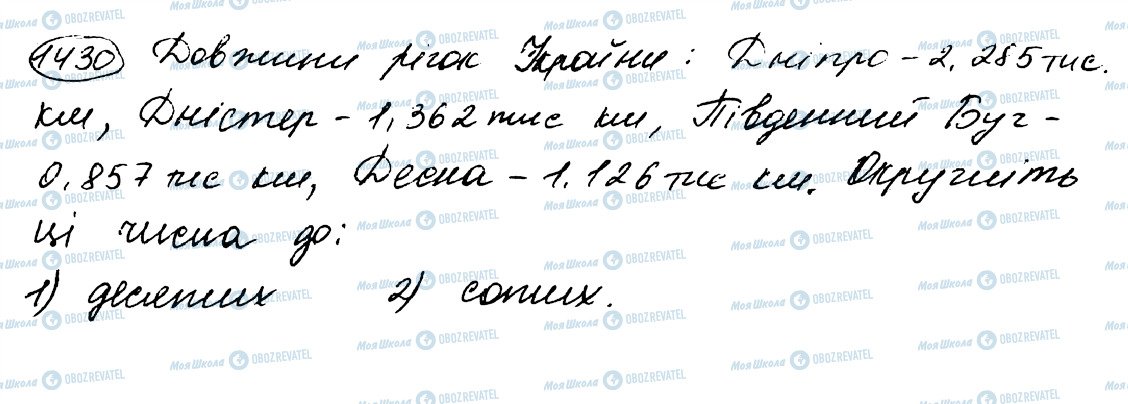 1430 Довжини річок Украйни: Дніпро - 2,285 тис.
км, Дністер - 1,362 тис км, Південний Буг -
0,857 тис км, Десна - 1,126 тис км. Округліть
ці числа до:
1) десятих 2) сотих.